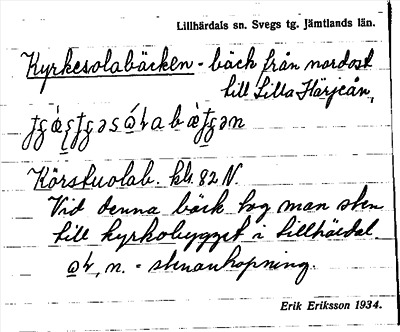 Lillhärdals sn. Svegs tg. Jämtlands län.
Kyrkesolabäcken - bäck från nordost
till Lilla Härjeån,
Körstuolab. kbl. 82 N.
Vid denna bäck tog man sten
till kyrkobygget i Lillhärdal.
n. - stenanhopning.
Erik Eriksson 1934.